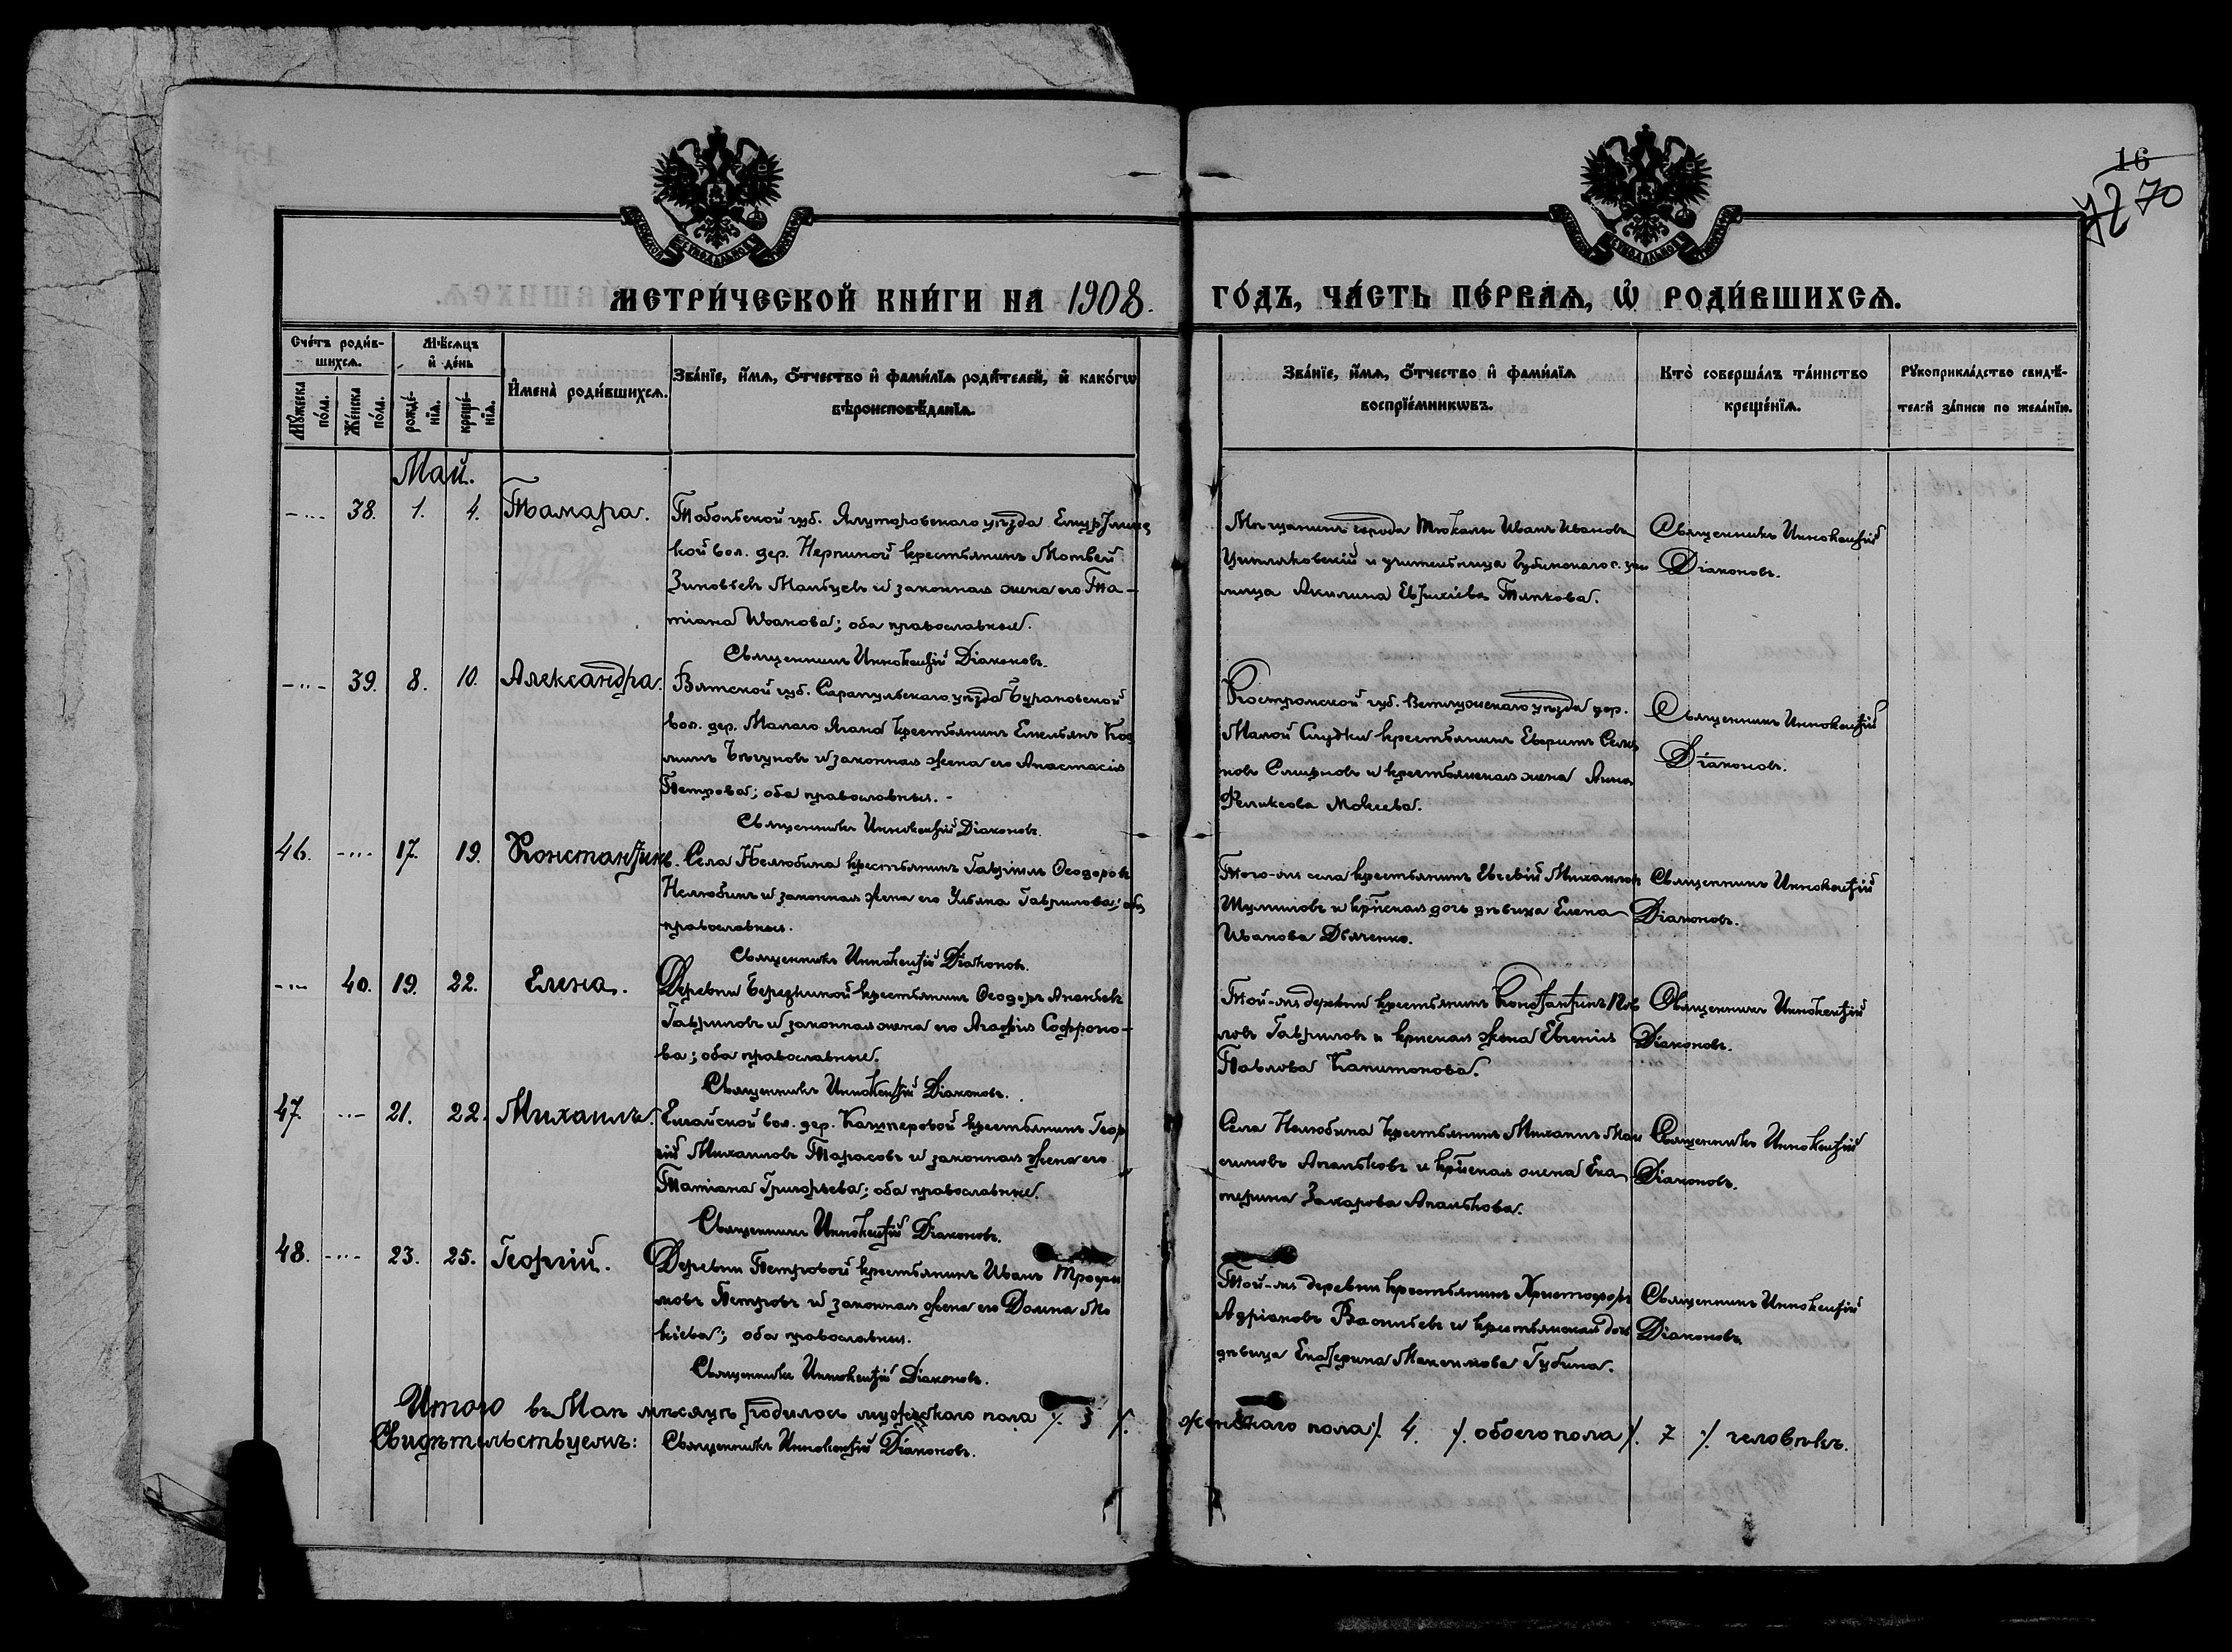 16
72 70
МЕТРИ́ЧЕСКОЙ КНИ́ГИ НА 1908.
ГО́ДЪ, ЧА́СТЬ ПЕ́РВАѦ, Ѡ РОДИ́ВШИХСѦ.
Сче́тъ роди́в-
шихсѧ.
Мѣ́сѧцъ
и҆ де́нь
Му́жеска по́ла.
Же́нска по́ла.
рожде́-нїѧ.
креще́-нїѧ.
И҆мена̀ роди́вшихсѧ.
Зва́нїе, и҆́мѧ, ѻ҆́тчество и҆ фами́лїѧ роди́телей, и҆ како́гѡ
вѣроисповѣ́данїѧ.
Зва́нїе, и҆́мѧ, ѻ҆́тчество и҆ фами́лїѧ
воспрїе́мникѡвъ.
Кто̀ соверша́лъ та́инство
креще́нїѧ.
Рꙋкоприкла́дство свидѣ́-
телей за́писи по жела́нїю.
Май.
38. 1. 4. Тамара.
Тобольской губ. Ялуторовскаго уѣзда
кой вол. дер. крестьянинъ Матвей
Зиновьевъ и законная жена его Та-
тіана Иванова; оба православные.
Священникъ Иннокентій Діаконовъ.
Мѣщанинъ города Иванъ Ивановъ
и учительница с. учи
лища Акилина Тяпкова.
Священникъ Иннокентій
Діаконовъ.
39. 8. 10. Александра.
Вятской губ. Сарапульскаго уѣзда Бурановской
вол. дер. Малаго крестьянинъ Емельянъ
и законная жена его Анастасія
Петрова; оба православныя.
Священникъ Иннокентій Діаконовъ.
Костромской губ. Ветлужскаго уѣзда дер.
Малой Слудки крестьянинъ
новъ Смирновъ и крестьянская жена Анна
Феликсова
Священникъ Иннокентій
Діаконовъ.
46. 17. 19. Константинъ.
Села Нелюбина крестьянинъ Гавріилъ Ѳеодоровъ
Нелюбинъ и законная жена его Ульяна Гаврилова; оба
православныя.
Священникъ Иннокентій Діаконовъ.
Того-же села крестьянинъ Евсевій Михаиловъ
Шумиловъ и кр̃нская дочь дѣвица Елена
Иванова Дьяченко.
Священникъ Иннокентій
Діаконовъ.
40. 19. 22. Елена.
Деревни Березкиной крестьянинъ Ѳеодоръ Ананьевъ
Гавриловъ и законная жена его Агафія Софроно-
ва; оба православные.
Священникъ Иннокентій Діаконовъ.
Той-же деревни крестьянинъ Константинъ
Гавриловъ и кр̃нская жена Евгенія
Павлова Капитонова.
Священникъ Иннокентій
Діаконовъ.
47. 21. 22. Михаилъ.
Елгайской вол. дер. крестьянинъ Геор
гій Михаиловъ Тарасовъ и законная жена его
Татіана Григорьева; оба православные.
Священникъ Иннокентій Діаконовъ.
Села Нелюбина крестьянинъ Михаилъ Мак
симовъ и кр̃нская жена Ека
терина Захарова
Священникъ Иннокентій
Діаконовъ.
48. 23. 25. Георгій.
Деревни Петровой крестьянинъ Иванъ Трофи
мовъ Петровъ и законная жена его Домна Мо
кіева; оба православныя.
Священникъ Иннокентій Діаконовъ.
Той-же деревни крестьянинъ Христофоръ
Адріановъ Васильевъ и крестьянская дочь
дѣвица Екатерина Максимова Губина.
Священникъ Иннокентій
Діаконовъ.
Итого въ Маѣ мѣсяцѣ родилось мужескаго пола ⁒ 3 ⁒ женскаго пола ⁒ 4 ⁒ обоего пола ⁒ 7 ⁒ человѣкъ.
Свидѣтельствуемъ: Священникъ Иннокентій Діаконовъ.